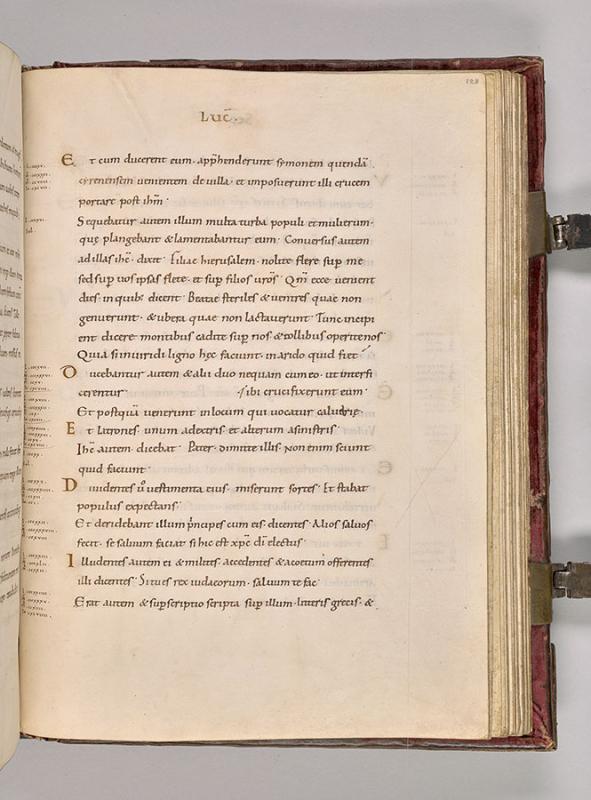 128
Luc̄.
Et cum ducerent eum. app̄henderunt symonem quendā
cyrenensem uenientem de uilla. et imposuerunt illi crucem
portare post ihm̄.
Sequebatur autem illum multa turba populi et mulierum.
quę plangebant & lamentabantur eum. Conuersus autem
ad illas ihc̄. dixit. Filiae hierusalem. nolite flere sup me
sed sup uos ipsas flete. et sup filios urōs. Qm̄ ecce uenient
dies in quib; dicent. Beatae steriles & uentres quae non
genuerunt. & ubera quae non lactauerunt. Tunc incipi
ent dicere montibus cadite sup nos & collibus operite nos.
Quia si in uiridi ligno hęc faciunt. in arido quid fiet.
Ducebantur autem & alii duo nequam cum eo. ut interfi
cerentur. / ibi crucifixerunt eum.
Et postquā uenerunt in locum qui uocatur caluarię.
Et latrones. unum a dextris. et alterum a sinistris.
Ihc̄ autem dicebat. Pater. dimitte illis. Non enim sciunt
quid faciunt.
Diuidentes u° uestimenta eius. miserunt sortes. Et stabat
populus expectans.
Et deridebant illum p̄ncipes cum eis. dicentes. Alios saluos
fecit. se saluum faciat si hic est xpc̄ dī electus.
Illudentes autem ei & milites. accedentes & acoetum offerentes
illi dicentes. Si tu es rex iudaeorum. saluum te fac.
Erat autem & sup scriptio scripta sup illum. litteris grecis. &